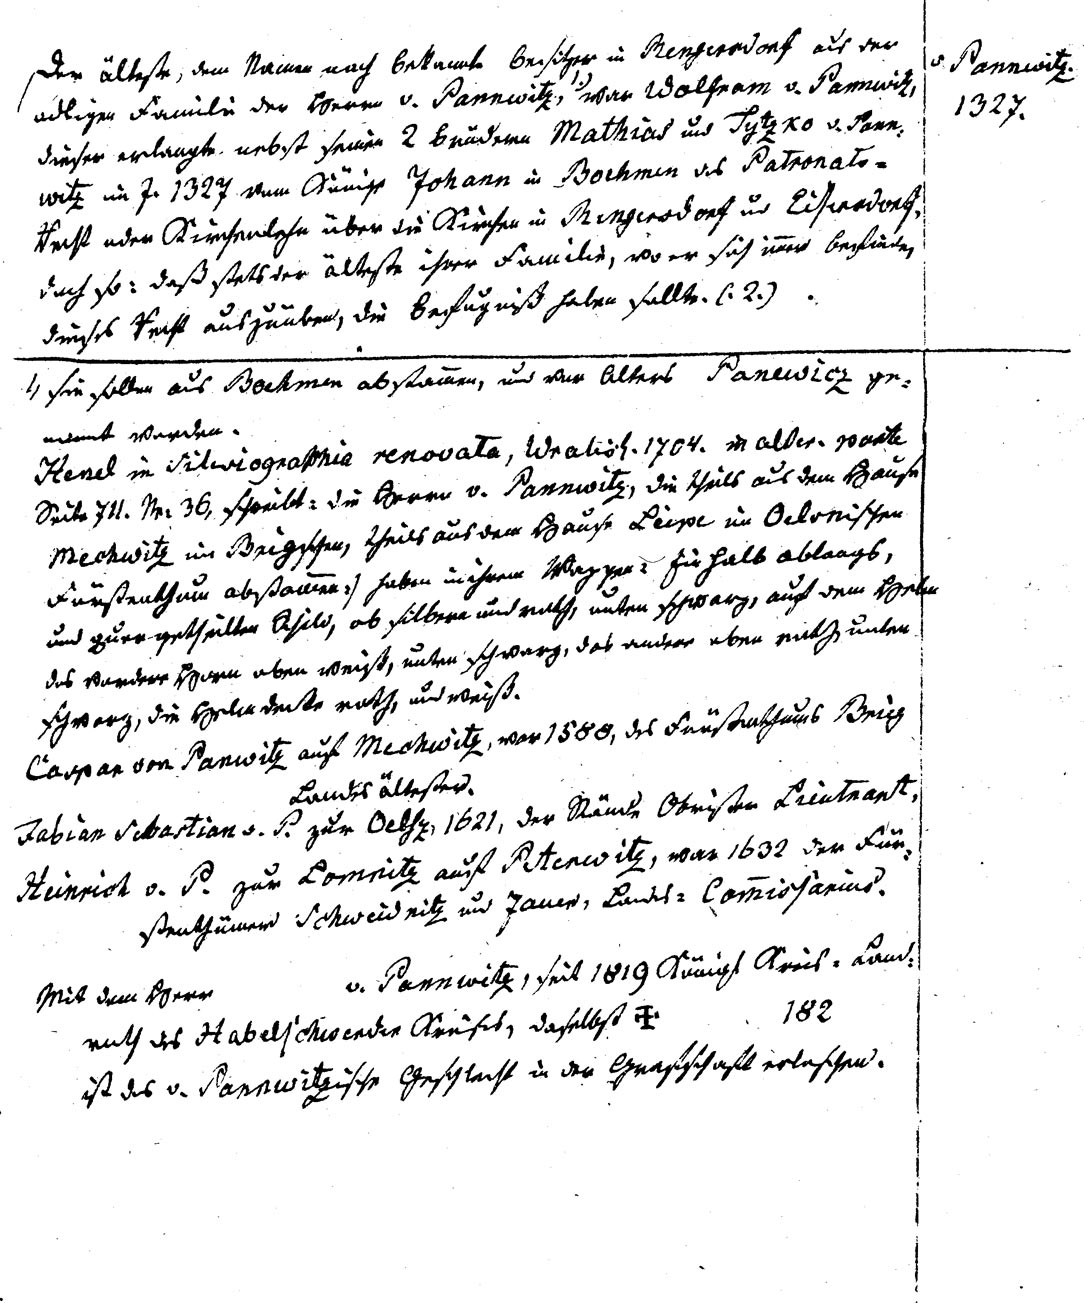 Der älteste, dem Namen nach bekannte Besitzer in Rengersdorf aus der
adligen Familie der Herrn v. Pannwitz, 1.) war Wolfram v. Pannwitz,
dieser erlangte nebst seinen 2 Brüdern Mathias und Tytzko v. Pann-
witz im J. 1327 vom Könige Johann in Boehmen das Patronats-
Recht oder Kirchenlehn über die Kirchen in Rengersdorf und Eisersdorf,
doch so: daß stets der älteste ihrer Familie, wo er sich immer befinde,
dieses Recht auszuüben, die Befugniß haben sollte. (. 2.)
v. Pannwitz.
1327.
1) sie sollen aus Boehmen abstammen, und vor Alters Panewicz ge-
nannt worden.
Henel in Silesiographia renovata, Wratisl. 1704. in alter. parte
Seite 711. Nr. 36, schreibt: die Herrn v. Pannwitz, die theils aus dem Hause
Mechwitz im Briegschen, theils aus dem Hause Leipe im Oelsnischen
Fürstenthum abstammen:) haben in ihrem Wappen: Ein halb ablangs,
und quer getheilten Schild, ob silbern und roth, unten schwarz, auf dem Helm
das vordere Horn oben weiß, unten schwarz, das andere oben roth, unten
schwarz, die Helmdecke roth, und weiß.
Caspar von Panwitz auf Mechwitz, war 1588, des Fürstenthums Brieg
Landesältester.
Fabian Sebastian v. P. zur Oelße, 1621, der Stände Obrister Lieutnant,
Heinrich v. P. zur Lomnitz auf Peterwitz, war 1632 der Für-
stenthümer Schweidnitz und Jauer, Landes-Commissarius.
Mit dem Herr v. Pannwitz, seit 1819 Königl Kreis-Land-
rath des Habelschwerdter Kreises, daselbst ✠ 182
ist das v. Pannwitzische Geschlecht in der Grafschaft erloschen.